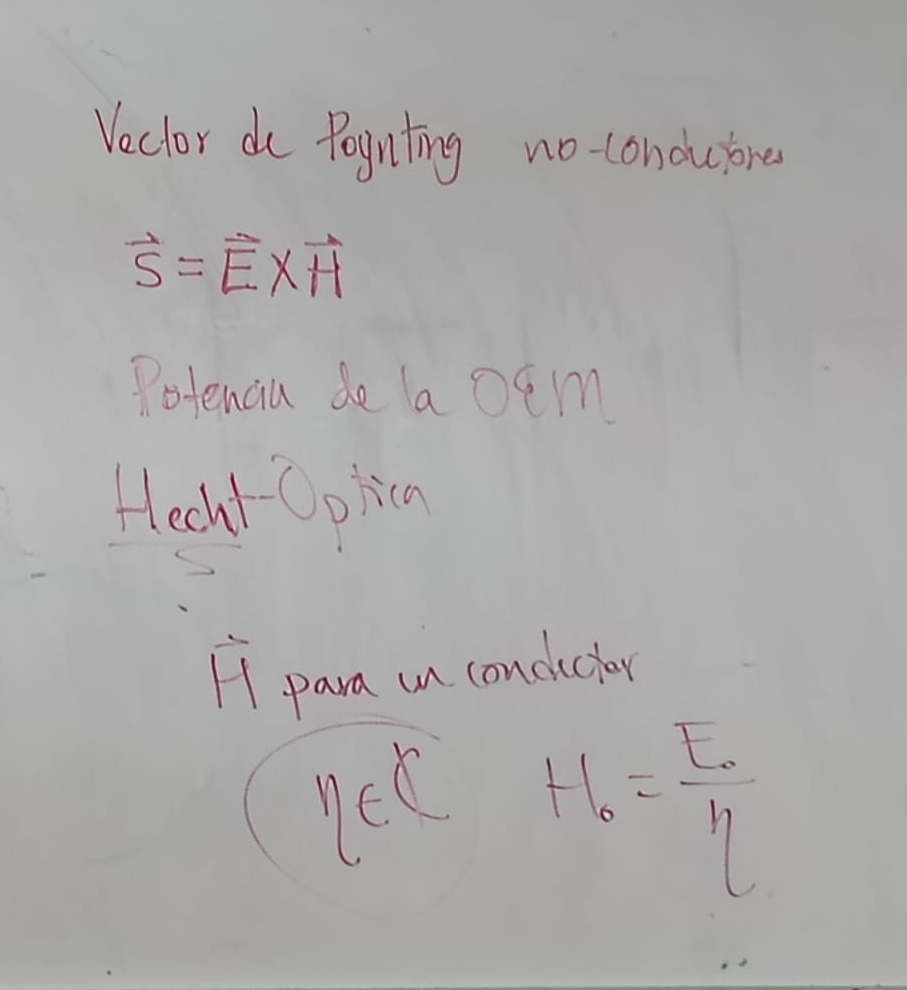 Vector de Poynting no-conductores
S⃗ = E⃗ X H⃗
Potencia de la OEM
Hecht-Optica
H⃗ para un conductor
η ∈ ℂ H₀ = E₀/η